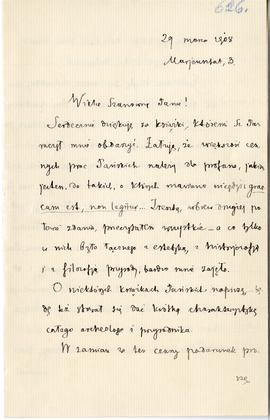 626.
29 marca 1908
Marjenstat, 3.
Wielce Szanowny Panie!
Serdecznie dziękuję za książki, któremi Sz. Pan
raczył mnie obdarzyć. Żałuję, że większość cen-
nych prac Pańskich należy do profano, jakim
jestem, do takich, o których mawiano niegdyś: grae-
cum est, non legitur... Zresztą, wbrew drugiej po-
łowie zdania, przeczytałem wszystkie – a co tylko
w nich było łącznego z estetyką, z historjozofją
i z filozofją przyrody, bardzo mnie zajęło.
O niektórych książkach Pańskich napiszę, bę-
dę też starał się dać krótką charakterystykę
całego archeologa i przyrodnika.
W zamian za ten cenny podarunek pro-
szę